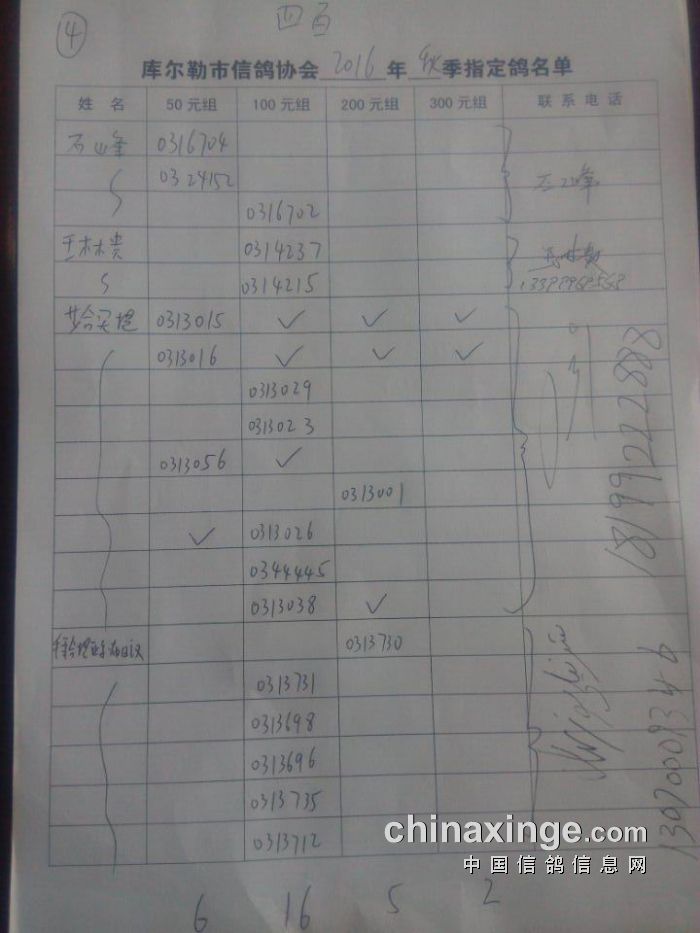 ④ 四百
库尔勒市信鸽协会 2016 年 秋季指定鸽名单
姓 名 50元组 100元组 200元组 300元组 联系电话
石山峰 0316704
0324152 石山峰
0316702
王林贵 0314237 王林贵
0314215
0313015 ✓ ✓ ✓
0313016 ✓ ✓ ✓
0313029
0313023
0313056 ✓
0313001
✓ 0313026
0344445
0313038 ✓
18199222888
0313730
0313731
0313698
0313696
0313735
0313712
chinaxinge.com
中国信鸽信息网
6 16 5 2